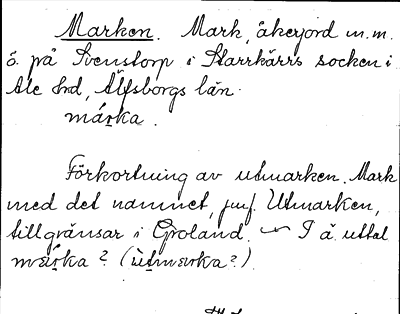 Marken. Mark, åkerjord m.m.
ö. på Svenstorp i Starrkärrs socken i
Ale hd, Älfsborgs län.
márka.
Förkortning av utmarken. Mark
med det namnet, jmf. Utmarken,
tillgränsar i Groland. I ä. uttal
mærka? (ùtmærka?)